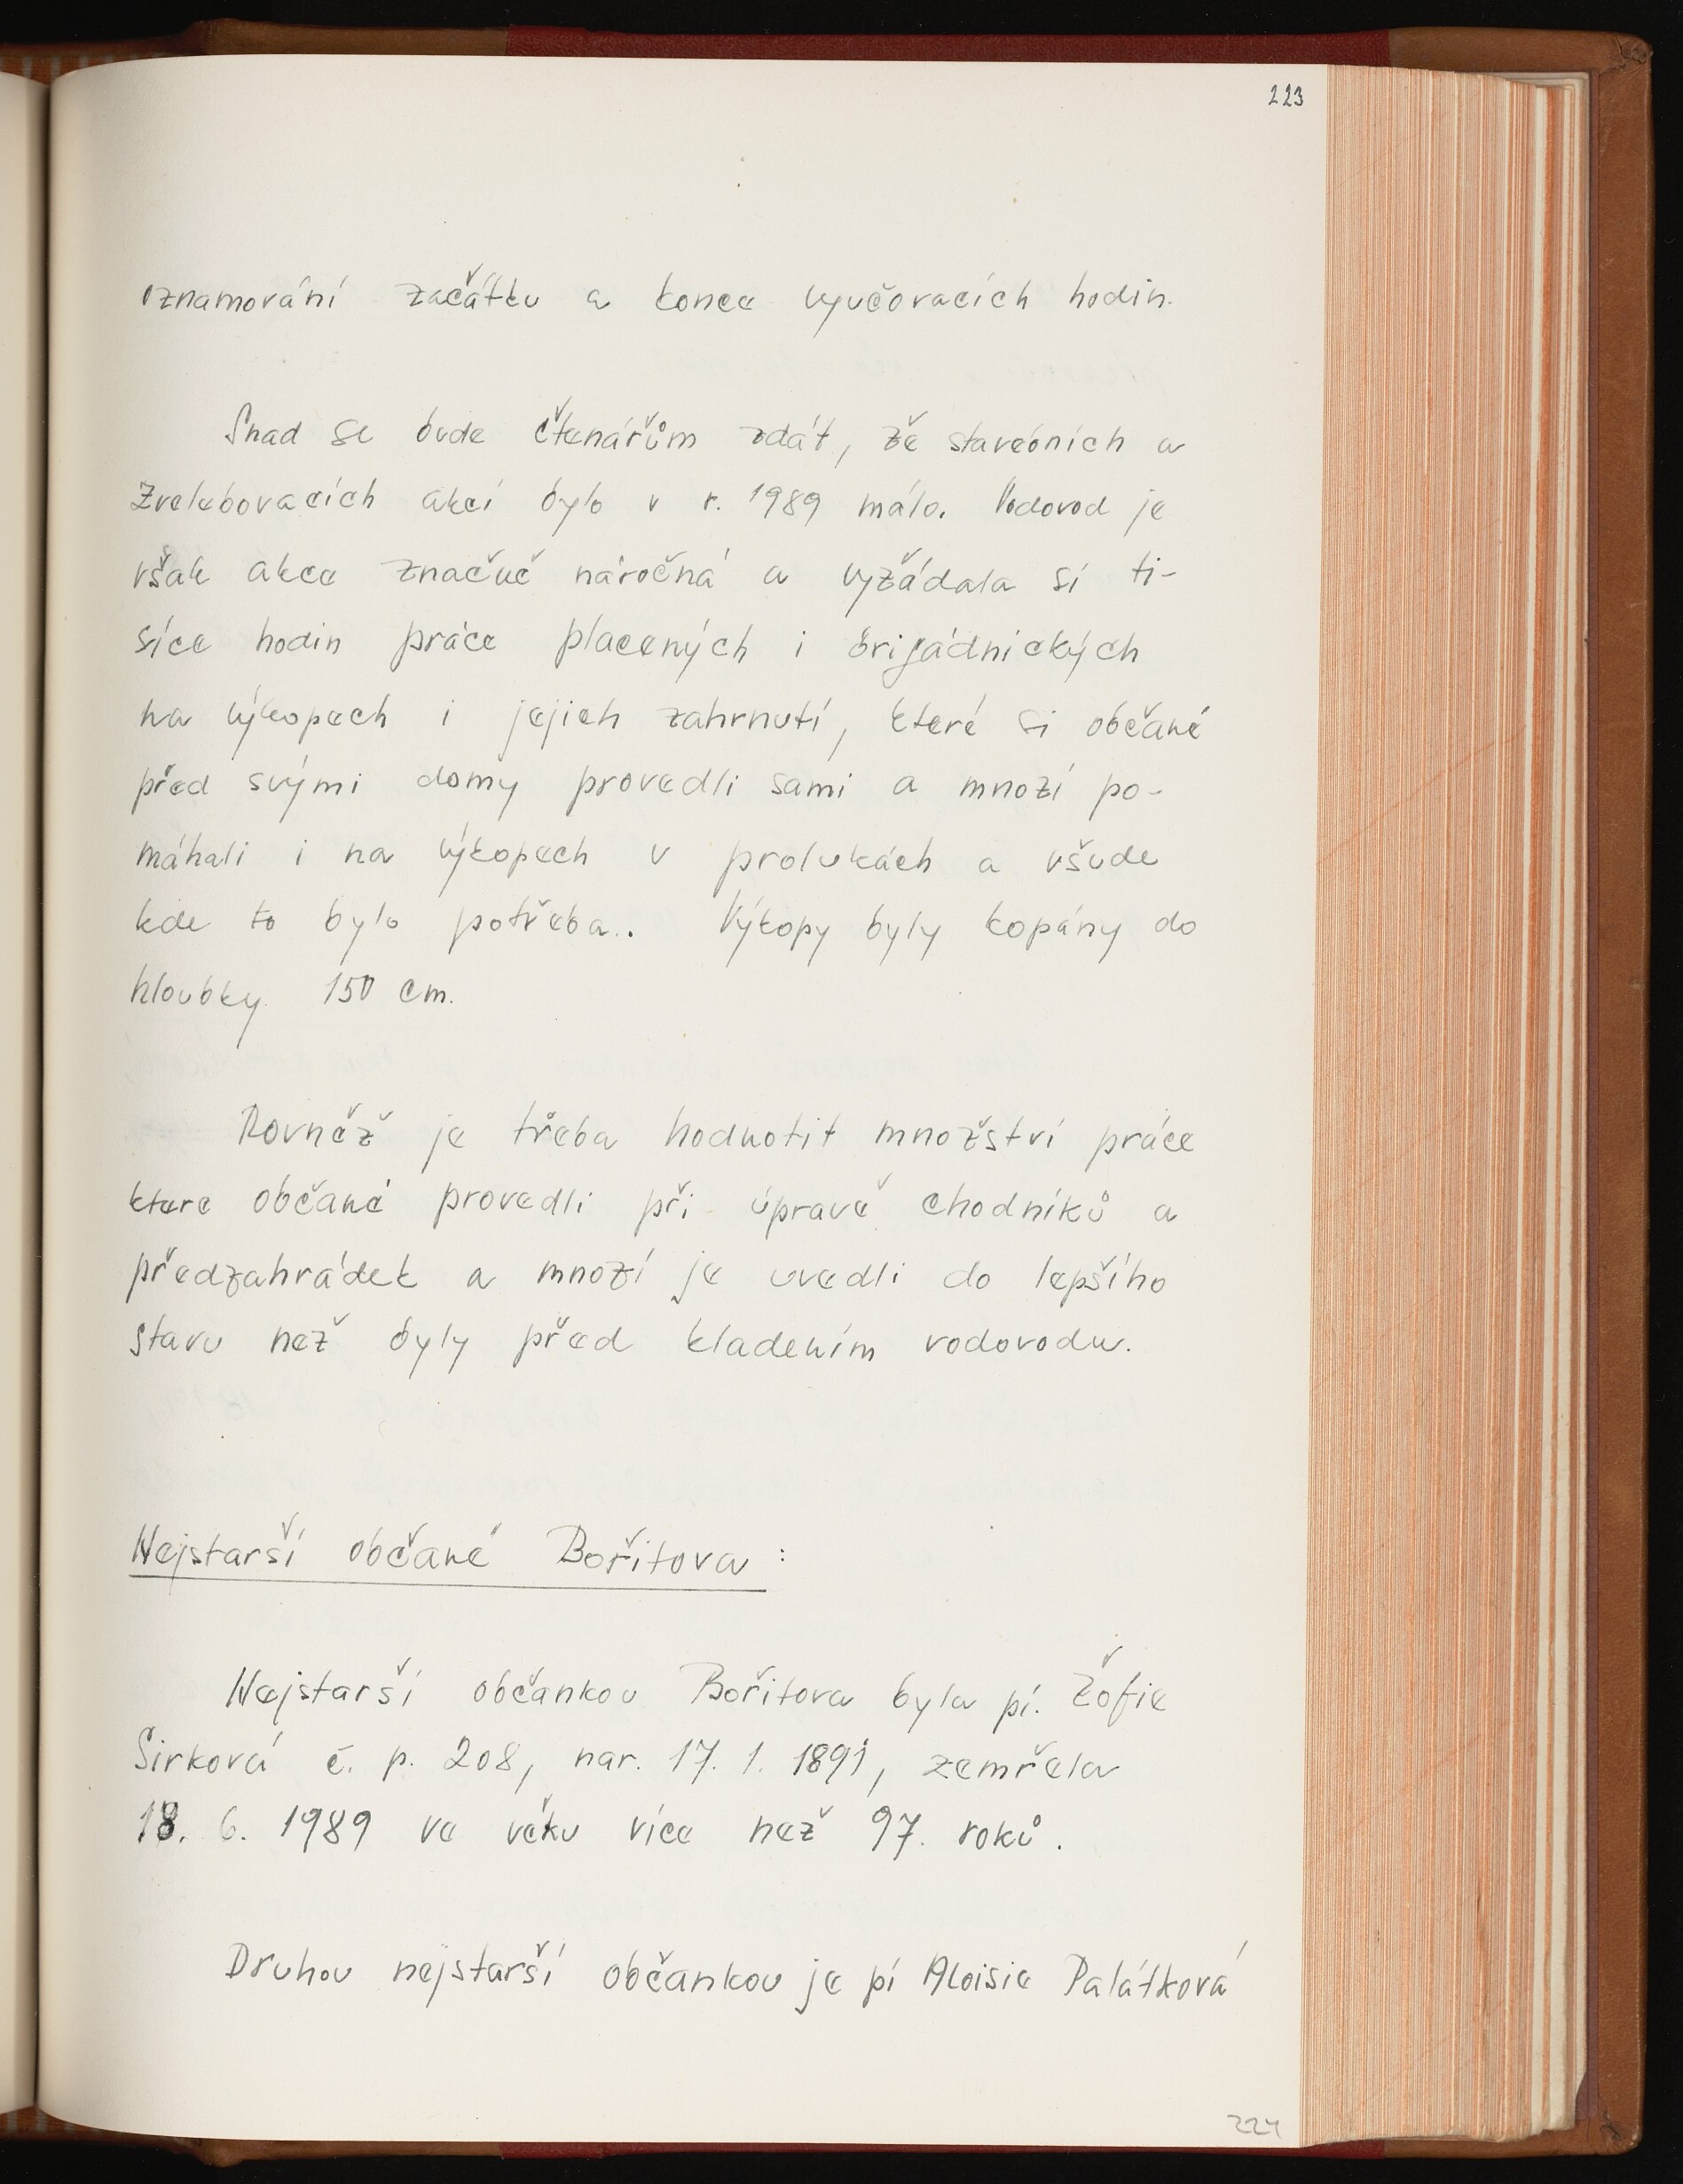 223
oznamování začátku a konce vyučovacích hodin.
Snad se bude čtenářům zdát, že stavebních a
zvelebovacích akcí bylo v r. 1989 málo. Vodovod je
však akce značně náročná a vyžádala si ti-
síce hodin práce placených i brigádnických
na výkopech i jejich zahrnutí, které si občané
před svými domy provedli sami a mnozí po-
máhali i na výkopech v prolukách a všude
kde to bylo potřeba.. Výkopy byly kopány do
hloubky 150 cm.
Rovněž je třeba hodnotit množství práce
ktere občané provedli při úpravě chodníků a
předzahrádek a mnozí je uvedli do lepšího
stavu než byly před kladením vodovodu.
Nejstarší občané Bořitova :
Nejstarší občankou Bořitova byla pí. Žofie
Sirková č. p. 208, nar. 17. 1. 1891, zemřela
18. 6. 1989 ve věku více než 97. roků.
Druhou nejstarší občankou je pí Aloisie Palátková
224